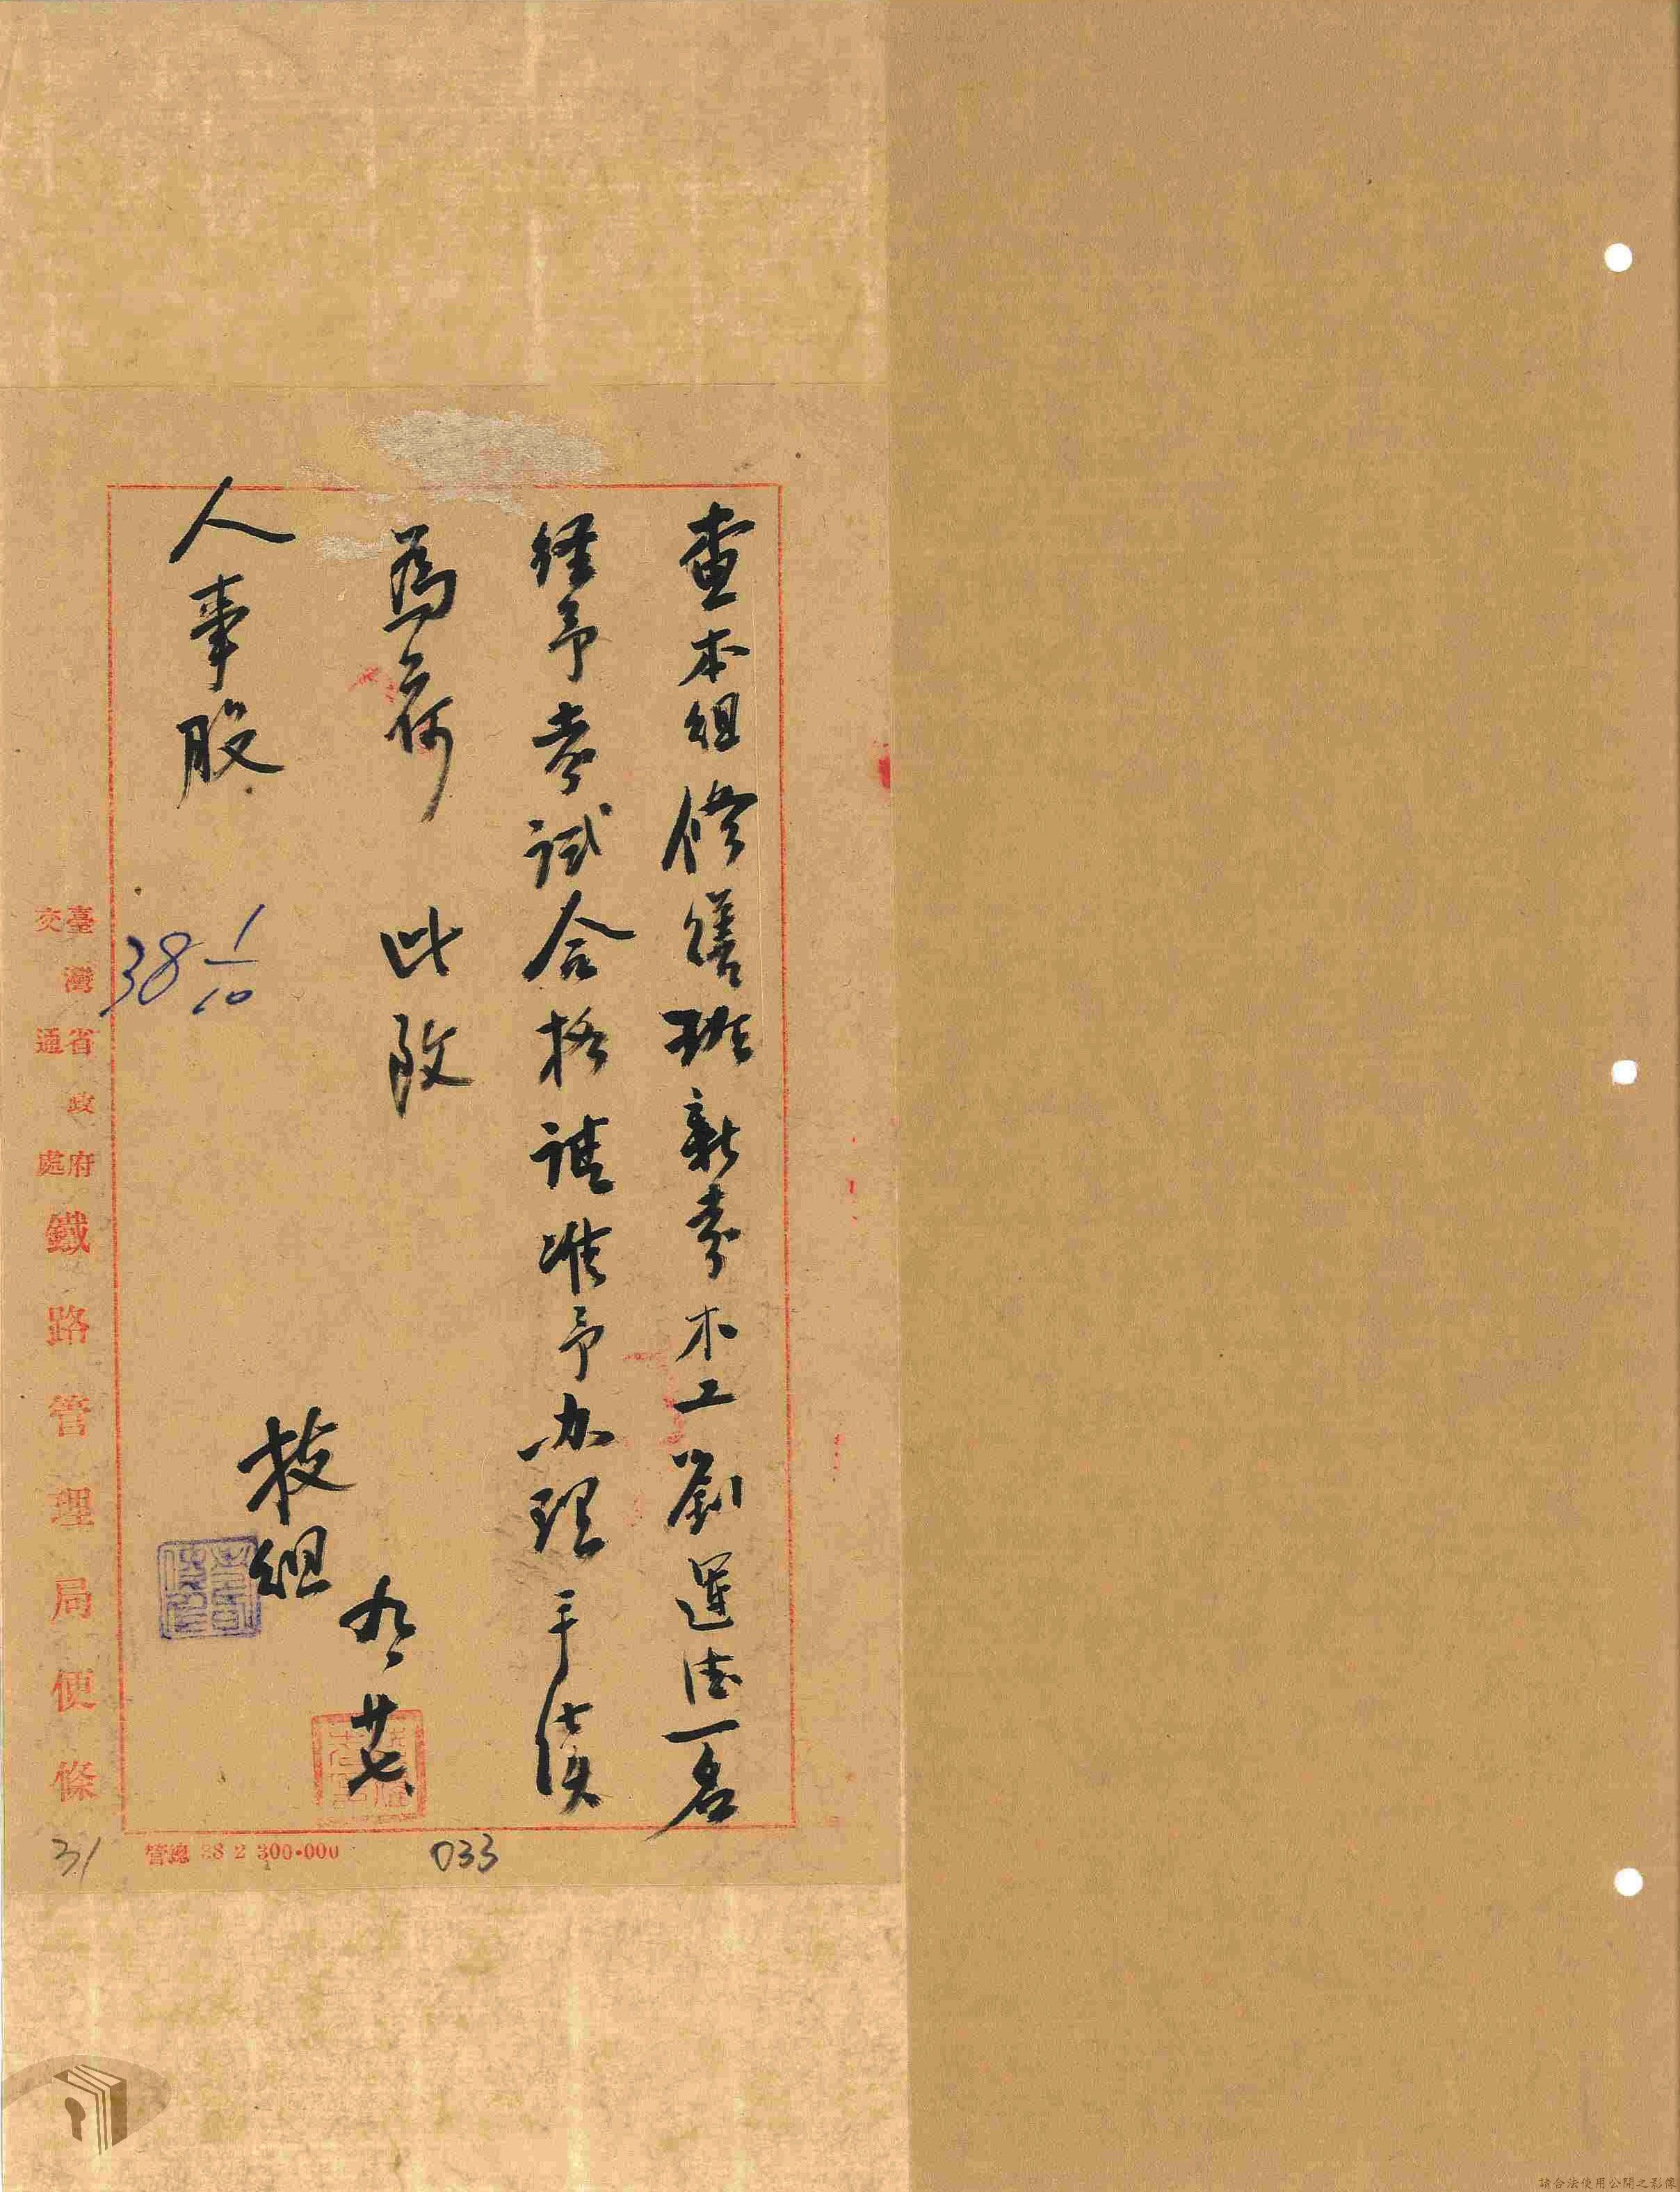 查本組修繕班新麥木工劉運法一名
經予考試合格請准予办理手續
為荷 此致
人事股
技組
九 廿七
38 1/10
臺灣省政府
交通處
鐵路管理局便條
管總 38 2 300·000
033
31
請合法使用公開之影像